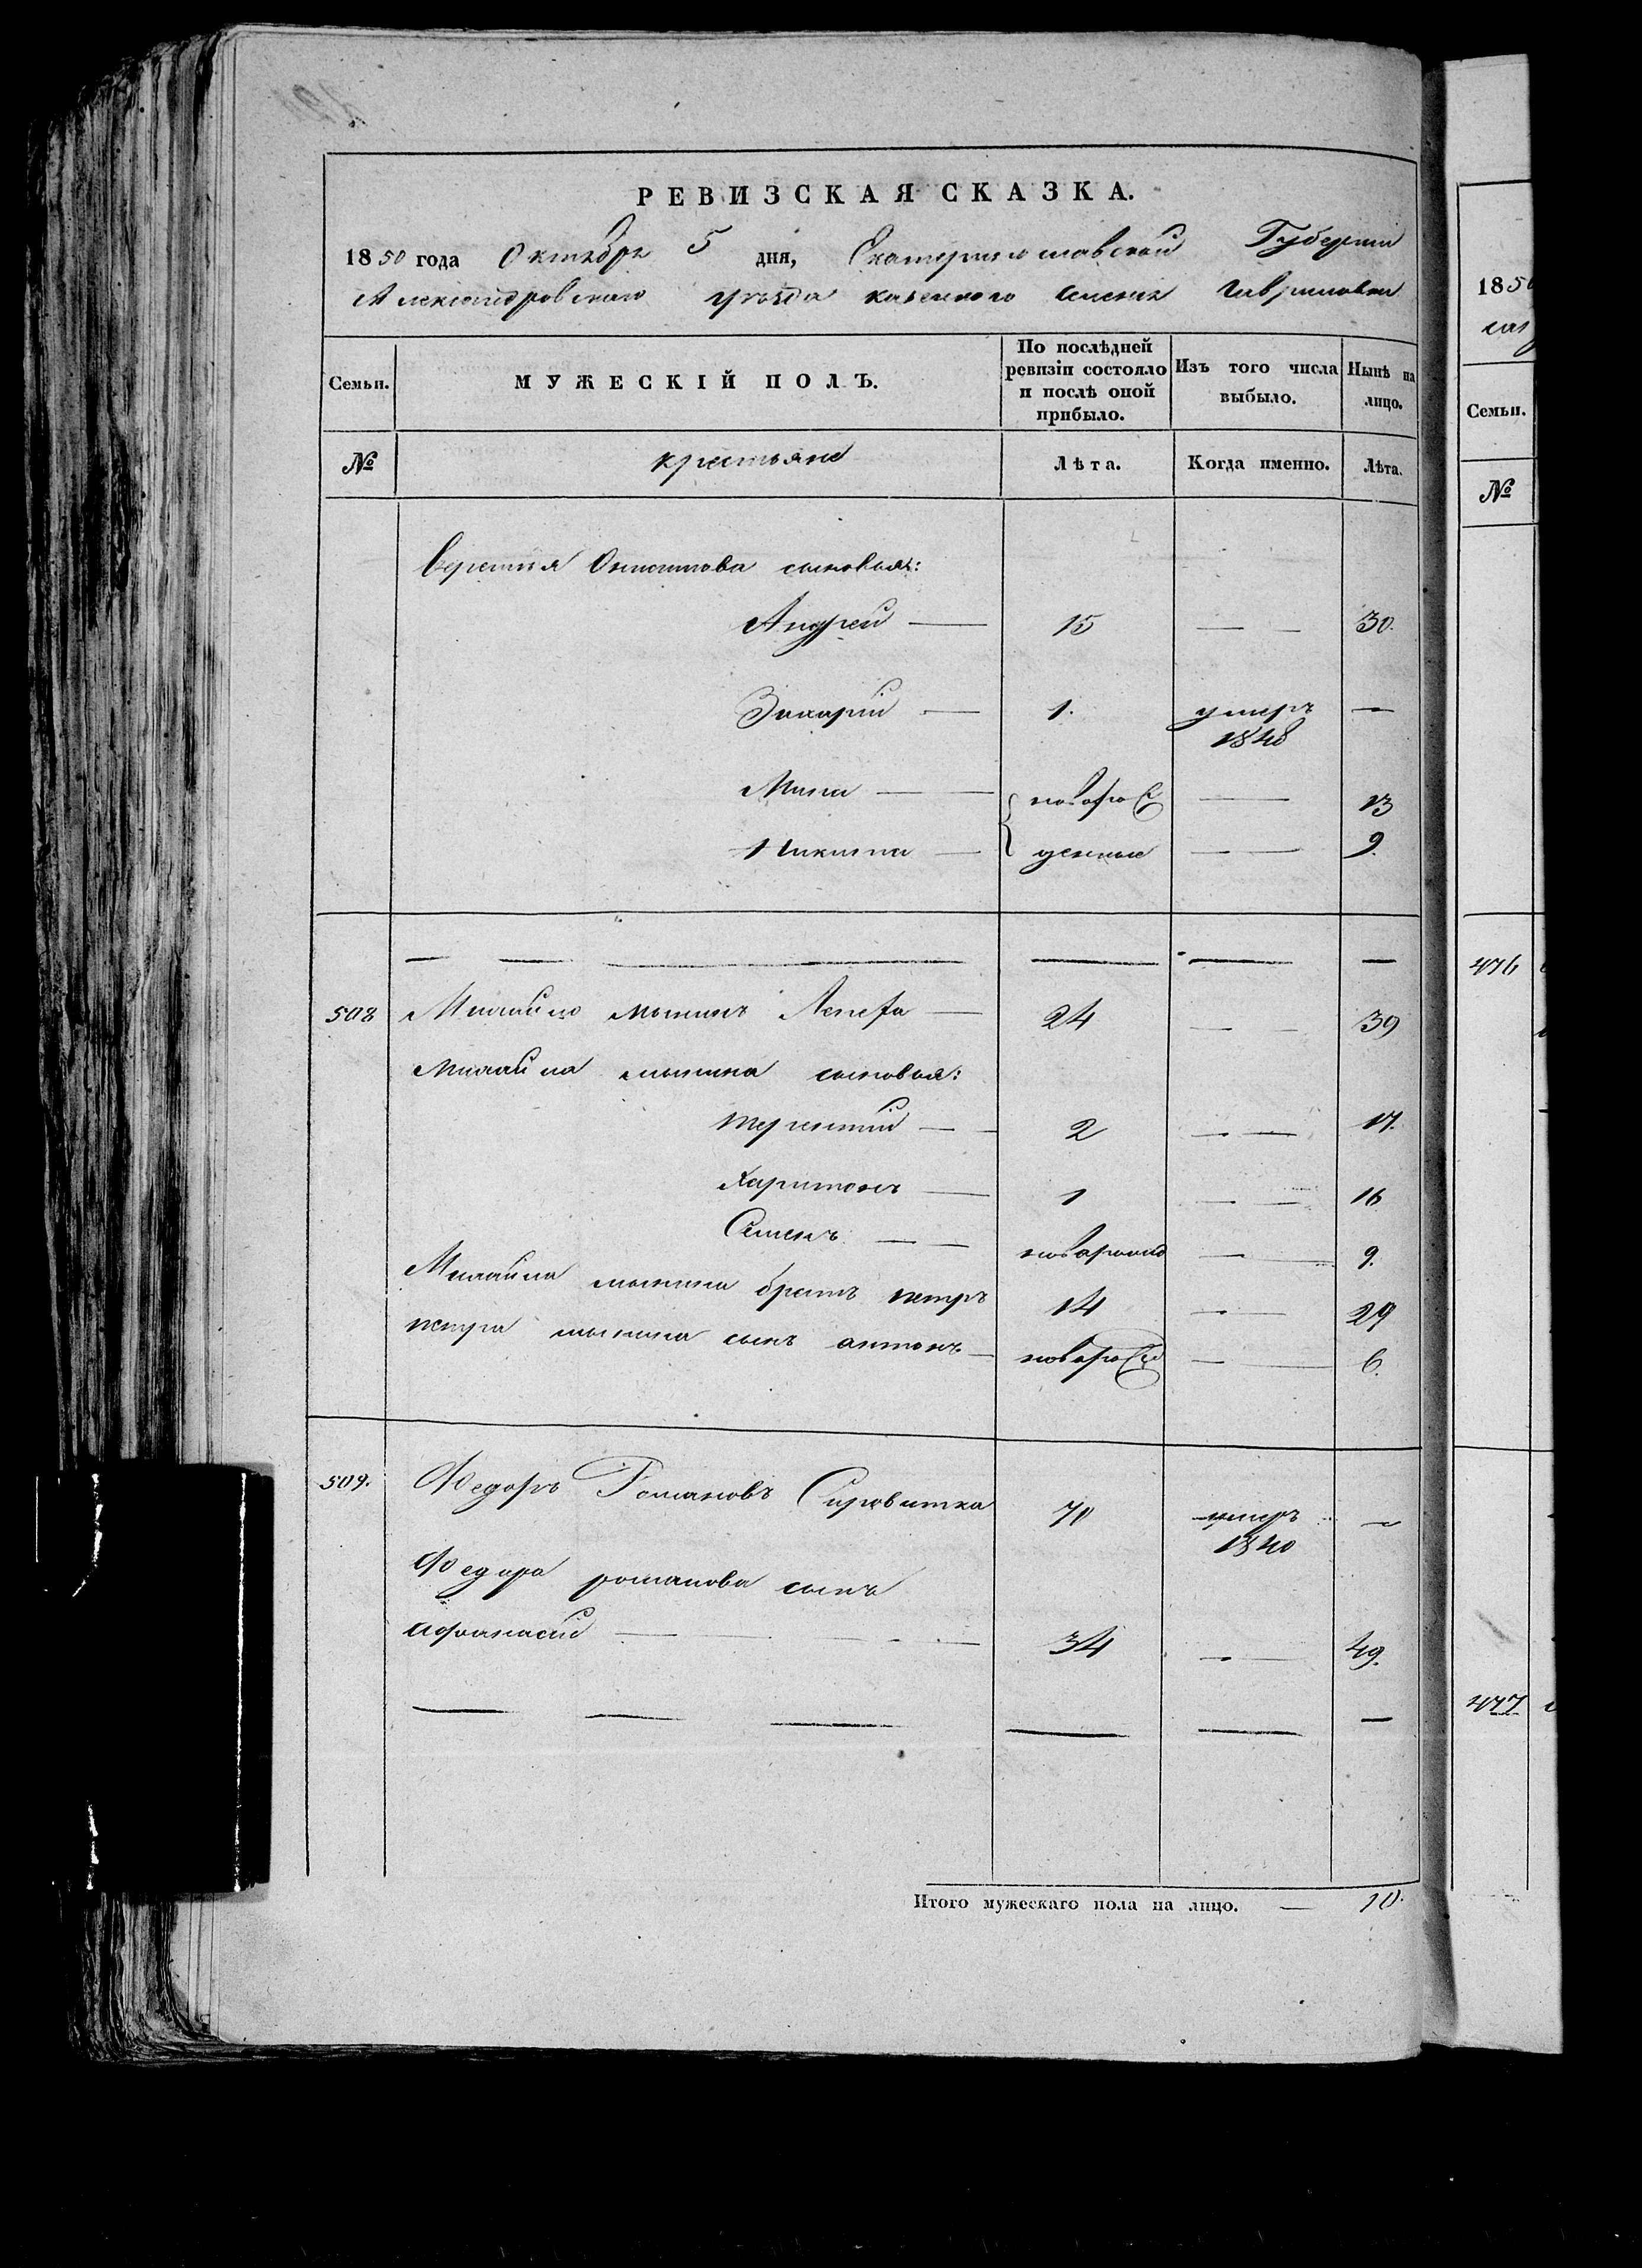 РЕВИЗСКАЯ СКАЗКА.
1850 года Октября 5 дня, Екатеринославской Губернии
Александровскаго уезда казенного селения Гавриловки
Семьи. МУЖЕСКІЙ ПОЛЪ. По послѣдней ревизіи состояло и послѣ оной прибыло. Изъ того числа выбыло. Нынѣ на лицо.
№ крестьяне Лѣта. Когда именно. Лѣта.
сыновья:
Андрей — 15 — — 30.
Захарий — 1. умеръ 1848 —
Мина — — новорож — 13
Никита — денные — 9.
— — — — — —
508 Михайло — 24 — — 39
Михайла сыновья:
терентий — — 2 — — 17.
Харитонъ — 1 — — 16
Семенъ — — новорожд — — 9.
Михайла братъ петръ 14 — — 29
петра сынъ антонъ — новорожд — — 6.
509. Федоръ Романовъ Сировитка 70 умеръ 1840 —
Федора романова сынъ
афанасий — — — 34 — — 49.
— — — — — —
Итого мужескаго пола на лицо. — 10.
185
Семьи.
№
476
477